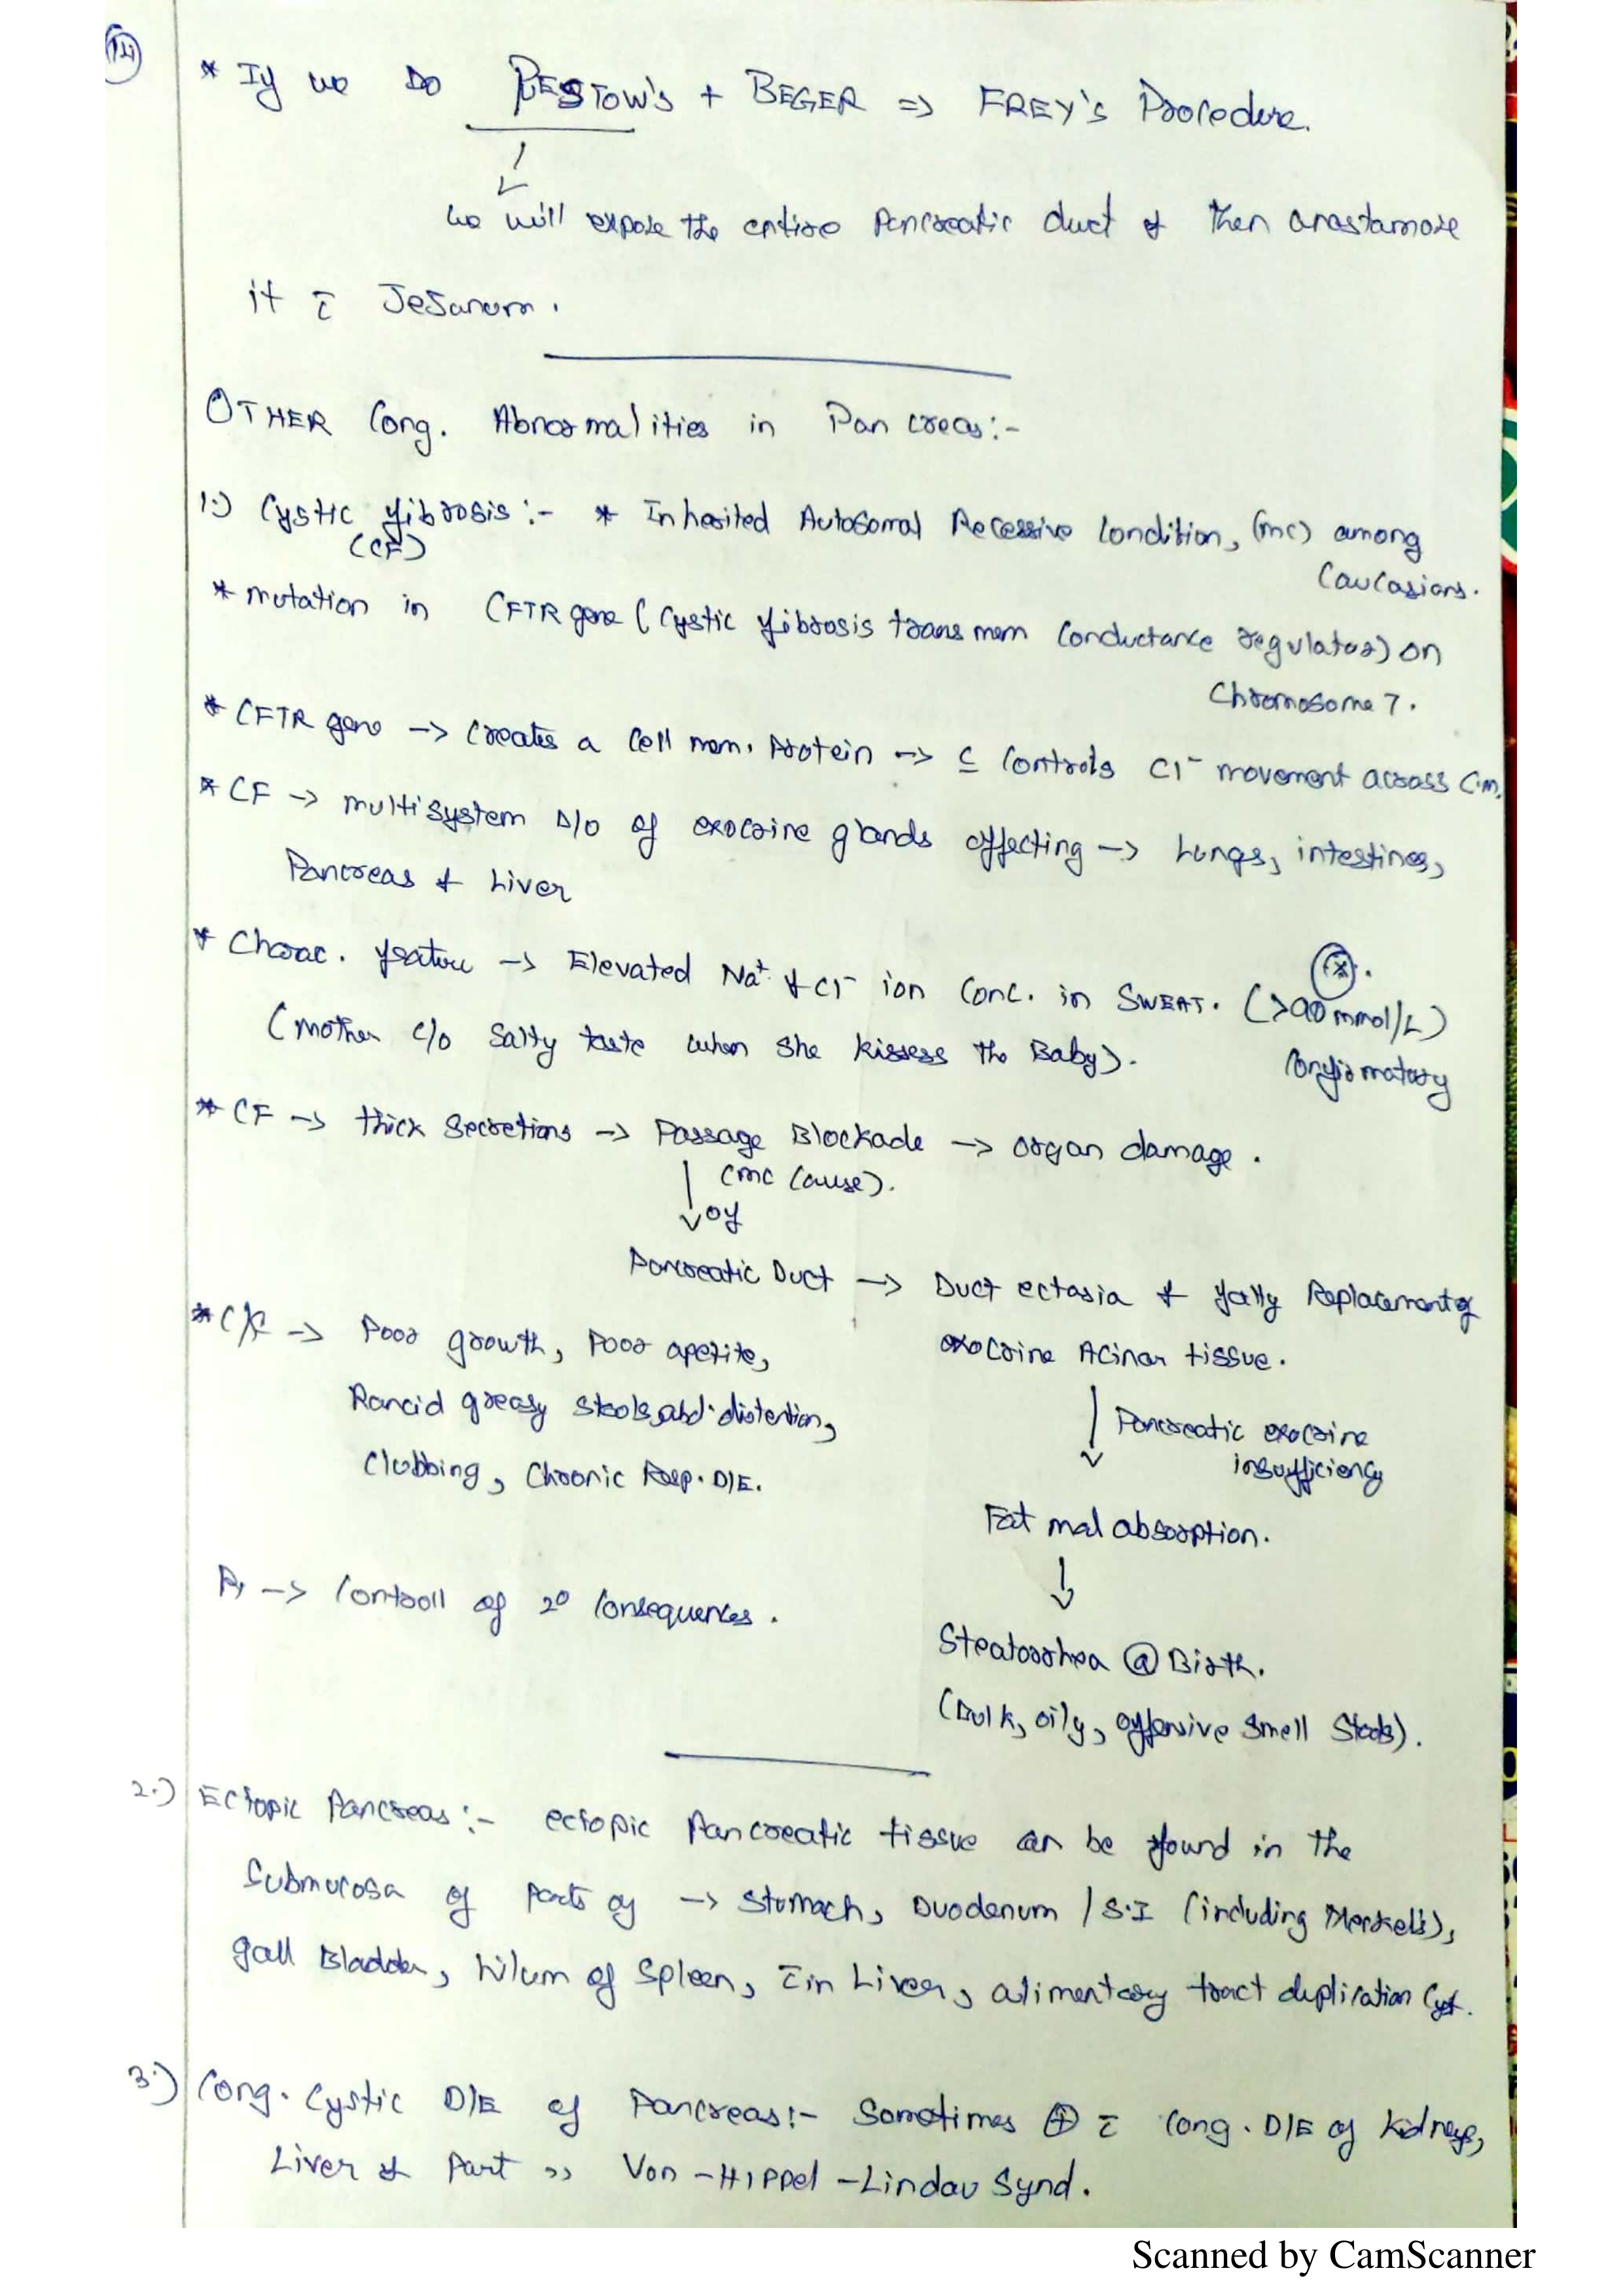 14
* If we Do PESTOW's + BEGER => FREY's Procedure.
we will expose the entire Pancreatic duct & then anastamose
it c̄ Jejunum.
OTHER Cong. Abnormalities in Pancreas:-
1.) Cystic fibrosis:- * Inherited Autosomal Recessive Condition, (mc) among
(CF)
Caucasians.
* mutation in CFTR gene (Cystic fibrosis trans mem Conductance regulator) on
Chromosome 7.
* CFTR gene -> Creates a Cell mem. Protein -> c̲ Controls Cl⁻ movement across C.m.
* CF -> multisystem D/o of exocrine glands affecting -> Lungs, intestines,
Pancreas & Liver
* Charac. feature -> Elevated Na⁺ & Cl⁻ ion Conc. in SWEAT. (>90 mmol/L)
(mother c/o Salty taste when she kissess the Baby).
Confirmatory
* CF -> thick Secretions -> Passage Blockade -> organ damage.
(mc Cause).
of
Pancreatic Duct -> Duct ectasia & fatty Replacement of
exocrine Acinar tissue.
* C/F -> Poor growth, Poor apetite,
Rancid greasy stools, abd. distention,
Clubbing, Chronic Resp. D/E.
Pancreatic exocrine
insufficiency
Fat mal absorption.
Rx -> Controll of 2° Consequences.
Steatorrhea @ Birth.
(Bulk, oily, offensive smell Stools).
2.) Ectopic Pancreas:- ectopic Pancreatic tissue can be found in the
Submucosa of parts of -> Stomach, Duodenum / S.I (including Merkel's),
gall Bladder, hilum of Spleen, c̄in Liver, alimentary tract duplication Cyst.
3.) Cong. Cystic D/E of Pancreas:- Sometimes ⊕ c̄ Cong. D/E of kidneys,
Liver & Part ,, Von-Hippel-Lindau Synd.
Scanned by CamScanner